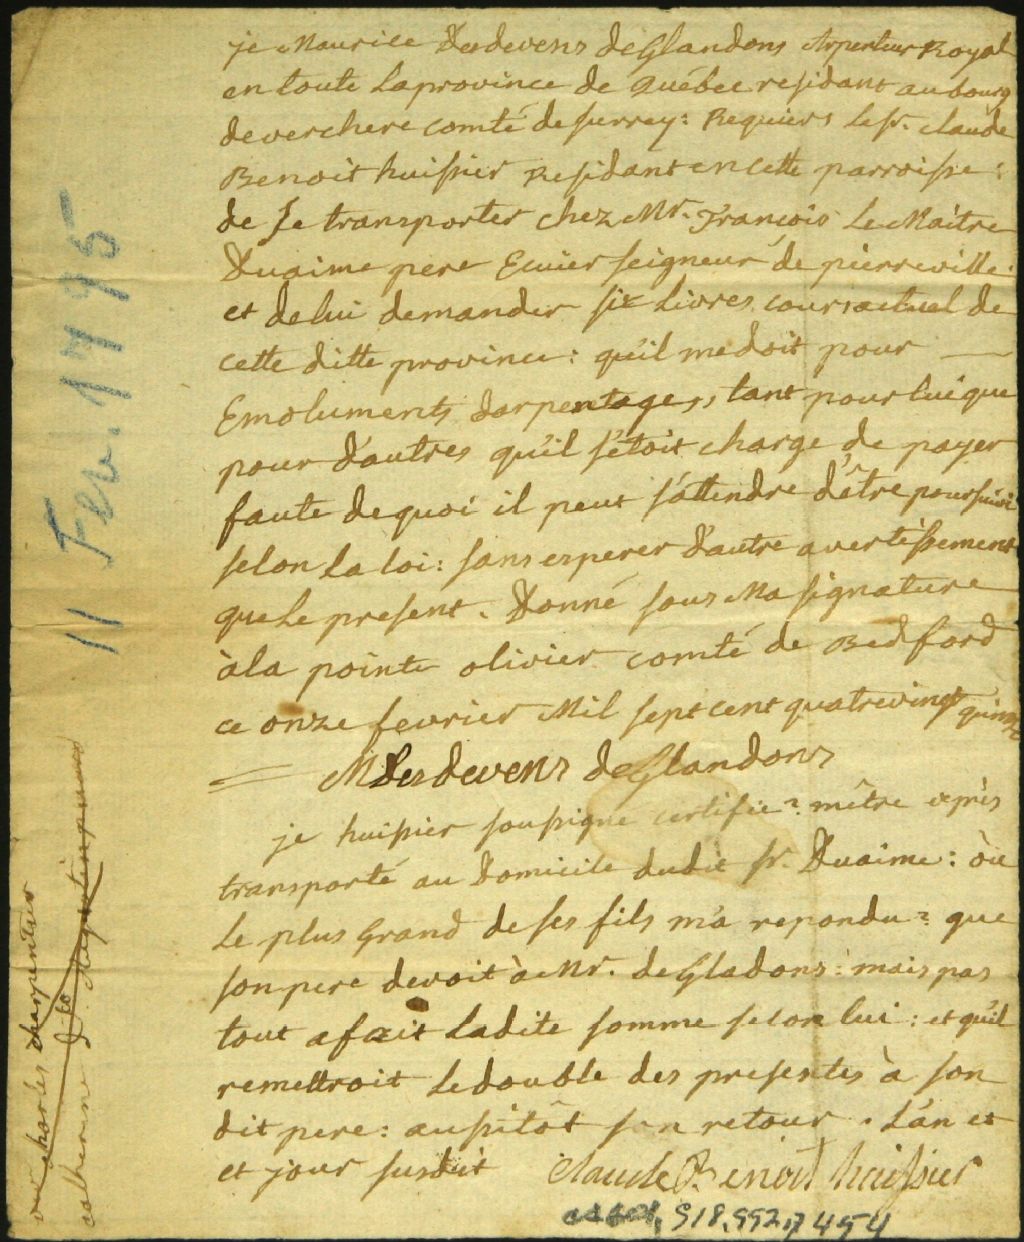 je Maurice Desdevens de Glandons Arpenteur Royal
en toute La province de Québec residant au bourg
de verchere comté de surrey: Requiers le sr. claude
Benoit huissier Residant en cette parroisse:
de se transporter chez Mr. François Le Maitre
Duaime pere Ecuier seigneur de pierreville
et de lui demander six Livres cours actuel de
cette ditte province: qu'il me doit pour —
Emoluments d'arpentages, tant pour lui que
pour d'autres qu'il s'étoit charge de payer
faute de quoi il peut s'attendre d'être poursuivi
selon La loi: sans esperer d'autre avertissement
que Le present. Donné sous Ma signature
à la pointe olivier comté de Bedford
ce onze fevrier Mil sept cent quatrevingt quinze
M Desdevens de Glandons
je huissier soussigné certifie: m'être exprès
transporté au Domicile dudit sr. Duaime: où
Le plus Grand de ses fils m'a repondu: que
son pere devoit à Mr. de Gladons: mais pas
tout afait Ladite somme selon lui: et qu'il
remettroit Le double des presentes à son
dit pere: aussitôt son retour. L'an et
et jour susdit Claude Benoit huissier
918,992,7454
11 Fev. 1795
charles charpentier
catherine dito